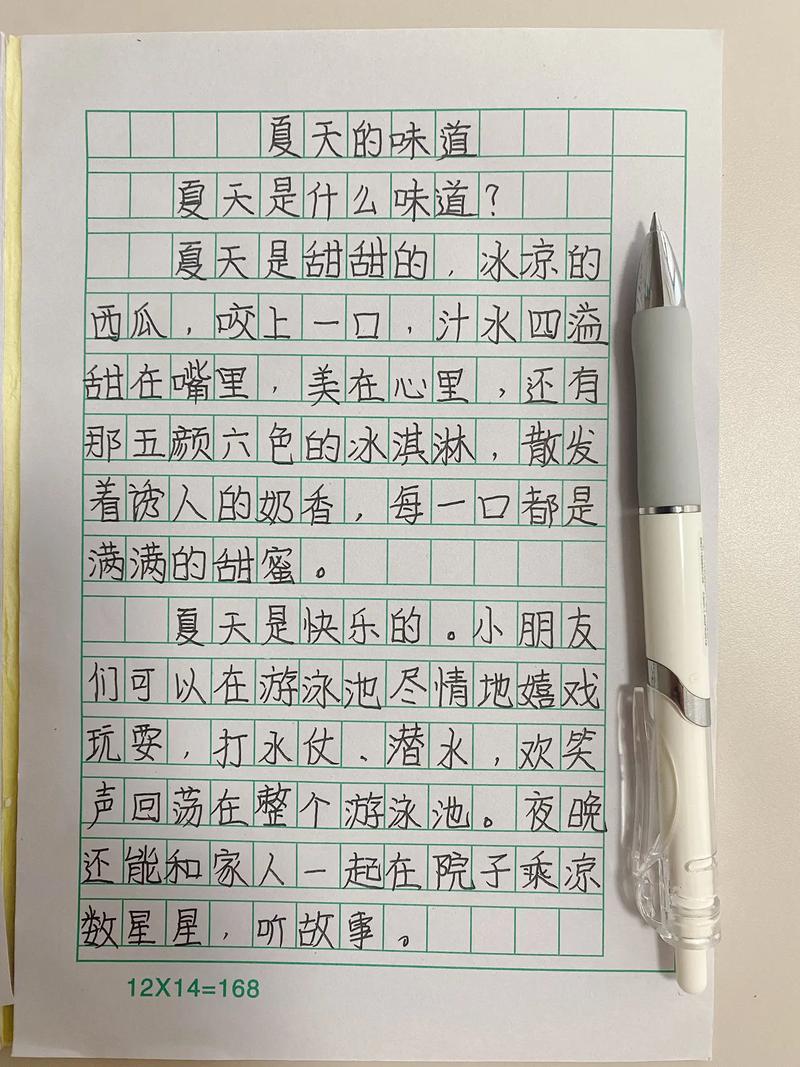 夏天的味道
夏天是什么味道？
夏天是甜甜的，冰凉的
西瓜，咬上一口，汁水四溢
甜在嘴里，美在心里，还有
那五颜六色的冰淇淋，散发
着诱人的奶香，每一口都是
满满的甜蜜。
夏天是快乐的。小朋友
们可以在游泳池尽情地嬉戏
玩耍，打水仗、潜水，欢笑
声回荡在整个游泳池。夜晚
还能和家人一起在院子乘凉
数星星，听故事。
12X14=168